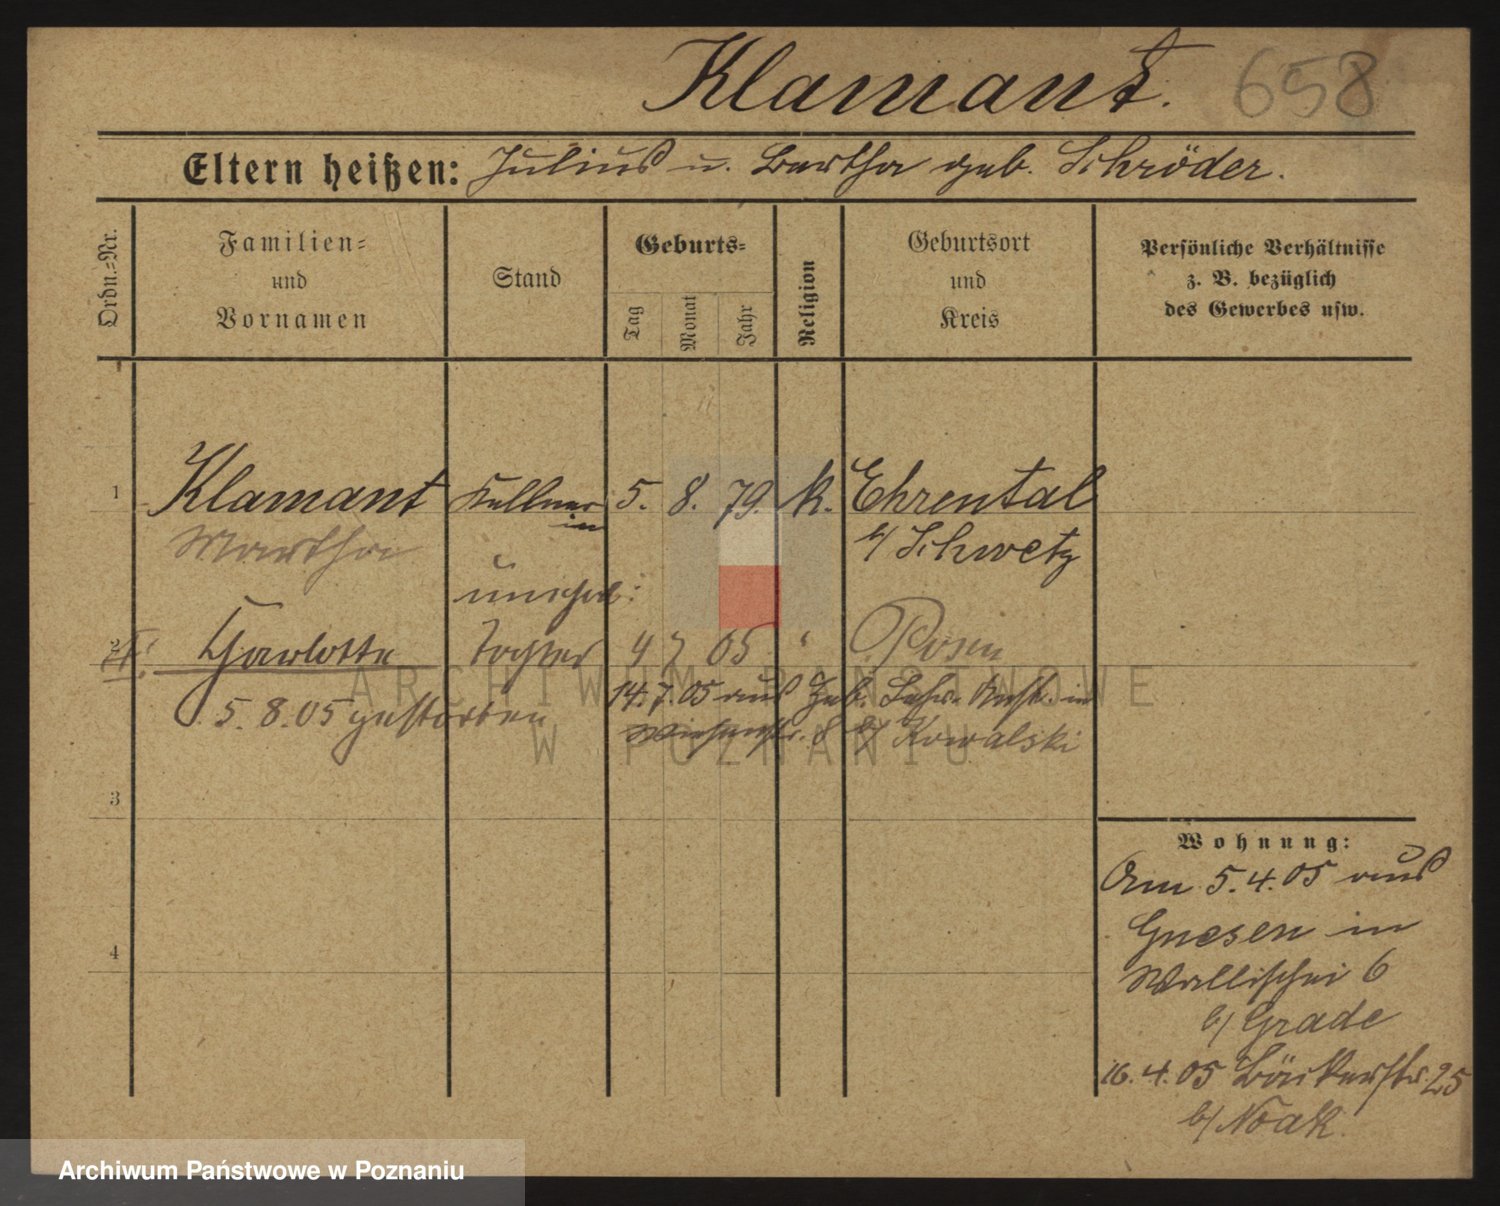 Klamant. 658
Eltern heißen: Julius u. Bertha geb. Schröder.
Ordn.=Nr.
Familien=
und
Vornamen
Stand
Geburts=
Tag
Monat
Jahr
Religion
Geburtsort
und
Kreis
Persönliche Verhältnisse
z. B. bezüglich
des Gewerbes usw.
1 Klamant Kellner 5. 8. 79. k. Ehrental
in
Martha b/ Schwetz
unehel:
2 Charlotte Tochter 4 7 05 " Posen
5.8.05 gestorben
14.7.05 aus Geb. Lehr. Anst. in
Wiesenstr. 8 b/ Kowalski
3
4
Wohnung:
Am 5.4.05 aus
Gnesen in
Wallischei 6
b/ Grade
16.4.05 Bäckerstr. 25
b/ Noak.
ARCHIWUM PAŃSTWOWE
W POZNANIU
Archiwum Państwowe w Poznaniu